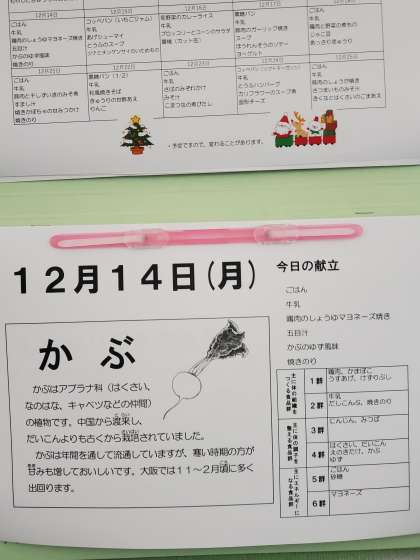 12月14日
ごはん
牛乳
鶏肉のしょうゆマヨネーズ焼き
五目汁
かぶのゆず風味
焼きのり
12月15日
コッペパン（いちごジャム）
牛乳
あげシューマイ
とうふのスープ
ツナとチンゲンサイのいためもの
12月16日
冬野菜のカレーライス
牛乳
ブロッコリーとコーンのサラダ
黄桃（カット缶）
12月17日
黒糖パン
牛乳
豚肉のガーリック焼き
スープ
ほうれんそうのソテー
ヨーグルト
ごはん
牛乳
鶏肉と野菜の煮もの
じゃこ豆
あっさりきゅうり
12月21日
ごはん
牛乳
豚肉と干しずいきのみそ煮
すまし汁
焼きかぼちゃの甘みつかけ
焼きのり
12月22日
黒糖パン（1/2）
牛乳
和風焼きそば
きゅうりの甘酢あえ
りんご
12月23日
ごはん
牛乳
さばのみぞれかけ
みそ汁
こまつなの煮びたし
12月24日
牛乳
とうふハンバーグ
カリフラワーのスープ煮
固形チーズ
12月25日
ごはん
牛乳
豚肉のしょうが焼き
さつまいものみそ汁
きくなとはくさいのごまあえ
・予定ですので、変わることがあります。
12月14日(月)
今日の献立
ごはん
牛乳
鶏肉のしょうゆマヨネーズ焼き
五目汁
かぶのゆず風味
焼きのり
かぶ
かぶはアブラナ科（はくさい、
なのはな、キャベツなどの仲間）
の植物です。中国から渡来し、
だいこんよりも古くから栽培されていました。
かぶは年間を通して流通していますが、寒い時期の方が
甘みも増しておいしいです。大阪では１１～２月頃に多く
出回ります。
主に体の組織をつくる食品群
1群
鶏肉、かまぼこ
うすあげ、けずりぶし
2群
牛乳
だしこんぶ、焼きのり
主に体の調子を整える食品群
3群
にんじん、みつば
4群
はくさい、だいこん
えのきたけ、かぶ
ゆず
主にエネルギーになる食品群
5群
ごはん
砂糖
6群
マヨネーズ